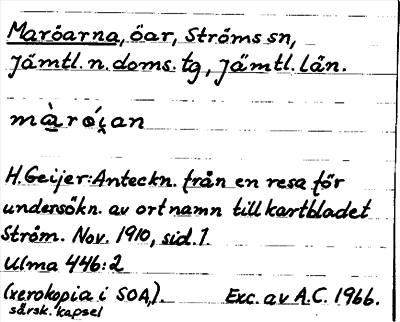 Maröarna, öar, Ströms sn,
Jämtl. n. doms. tg, Jämtl. län.
màro̲í̭an
H. Geijer: Anteckn. från en resa för
undersökn. av ortnamn till kartbladet
Ström. Nov. 1910, sid. 1.
Ulma 446:2
(xerokopia i SOA,). Exc. av A.C. 1966.
särsk. kapsel